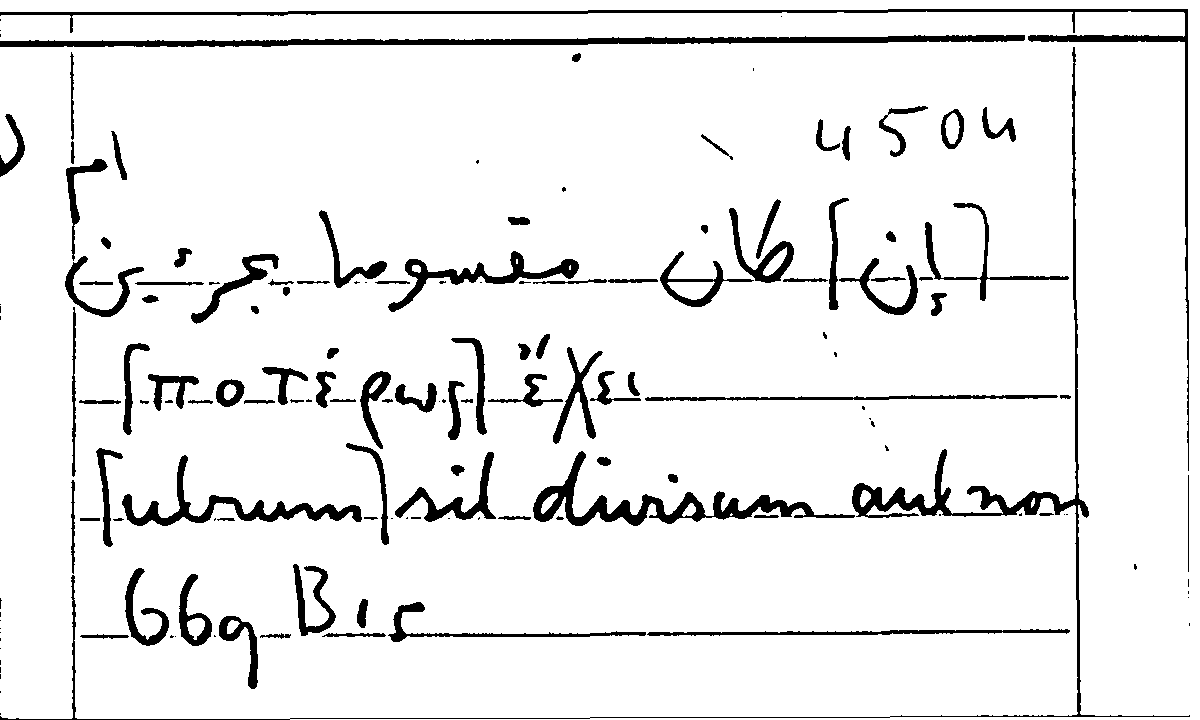 4504
[إن] كان مقسوما بجزئين
ام
[ποτέρως] ἔχει
[utrum] sit divisum aut non
669 B 15